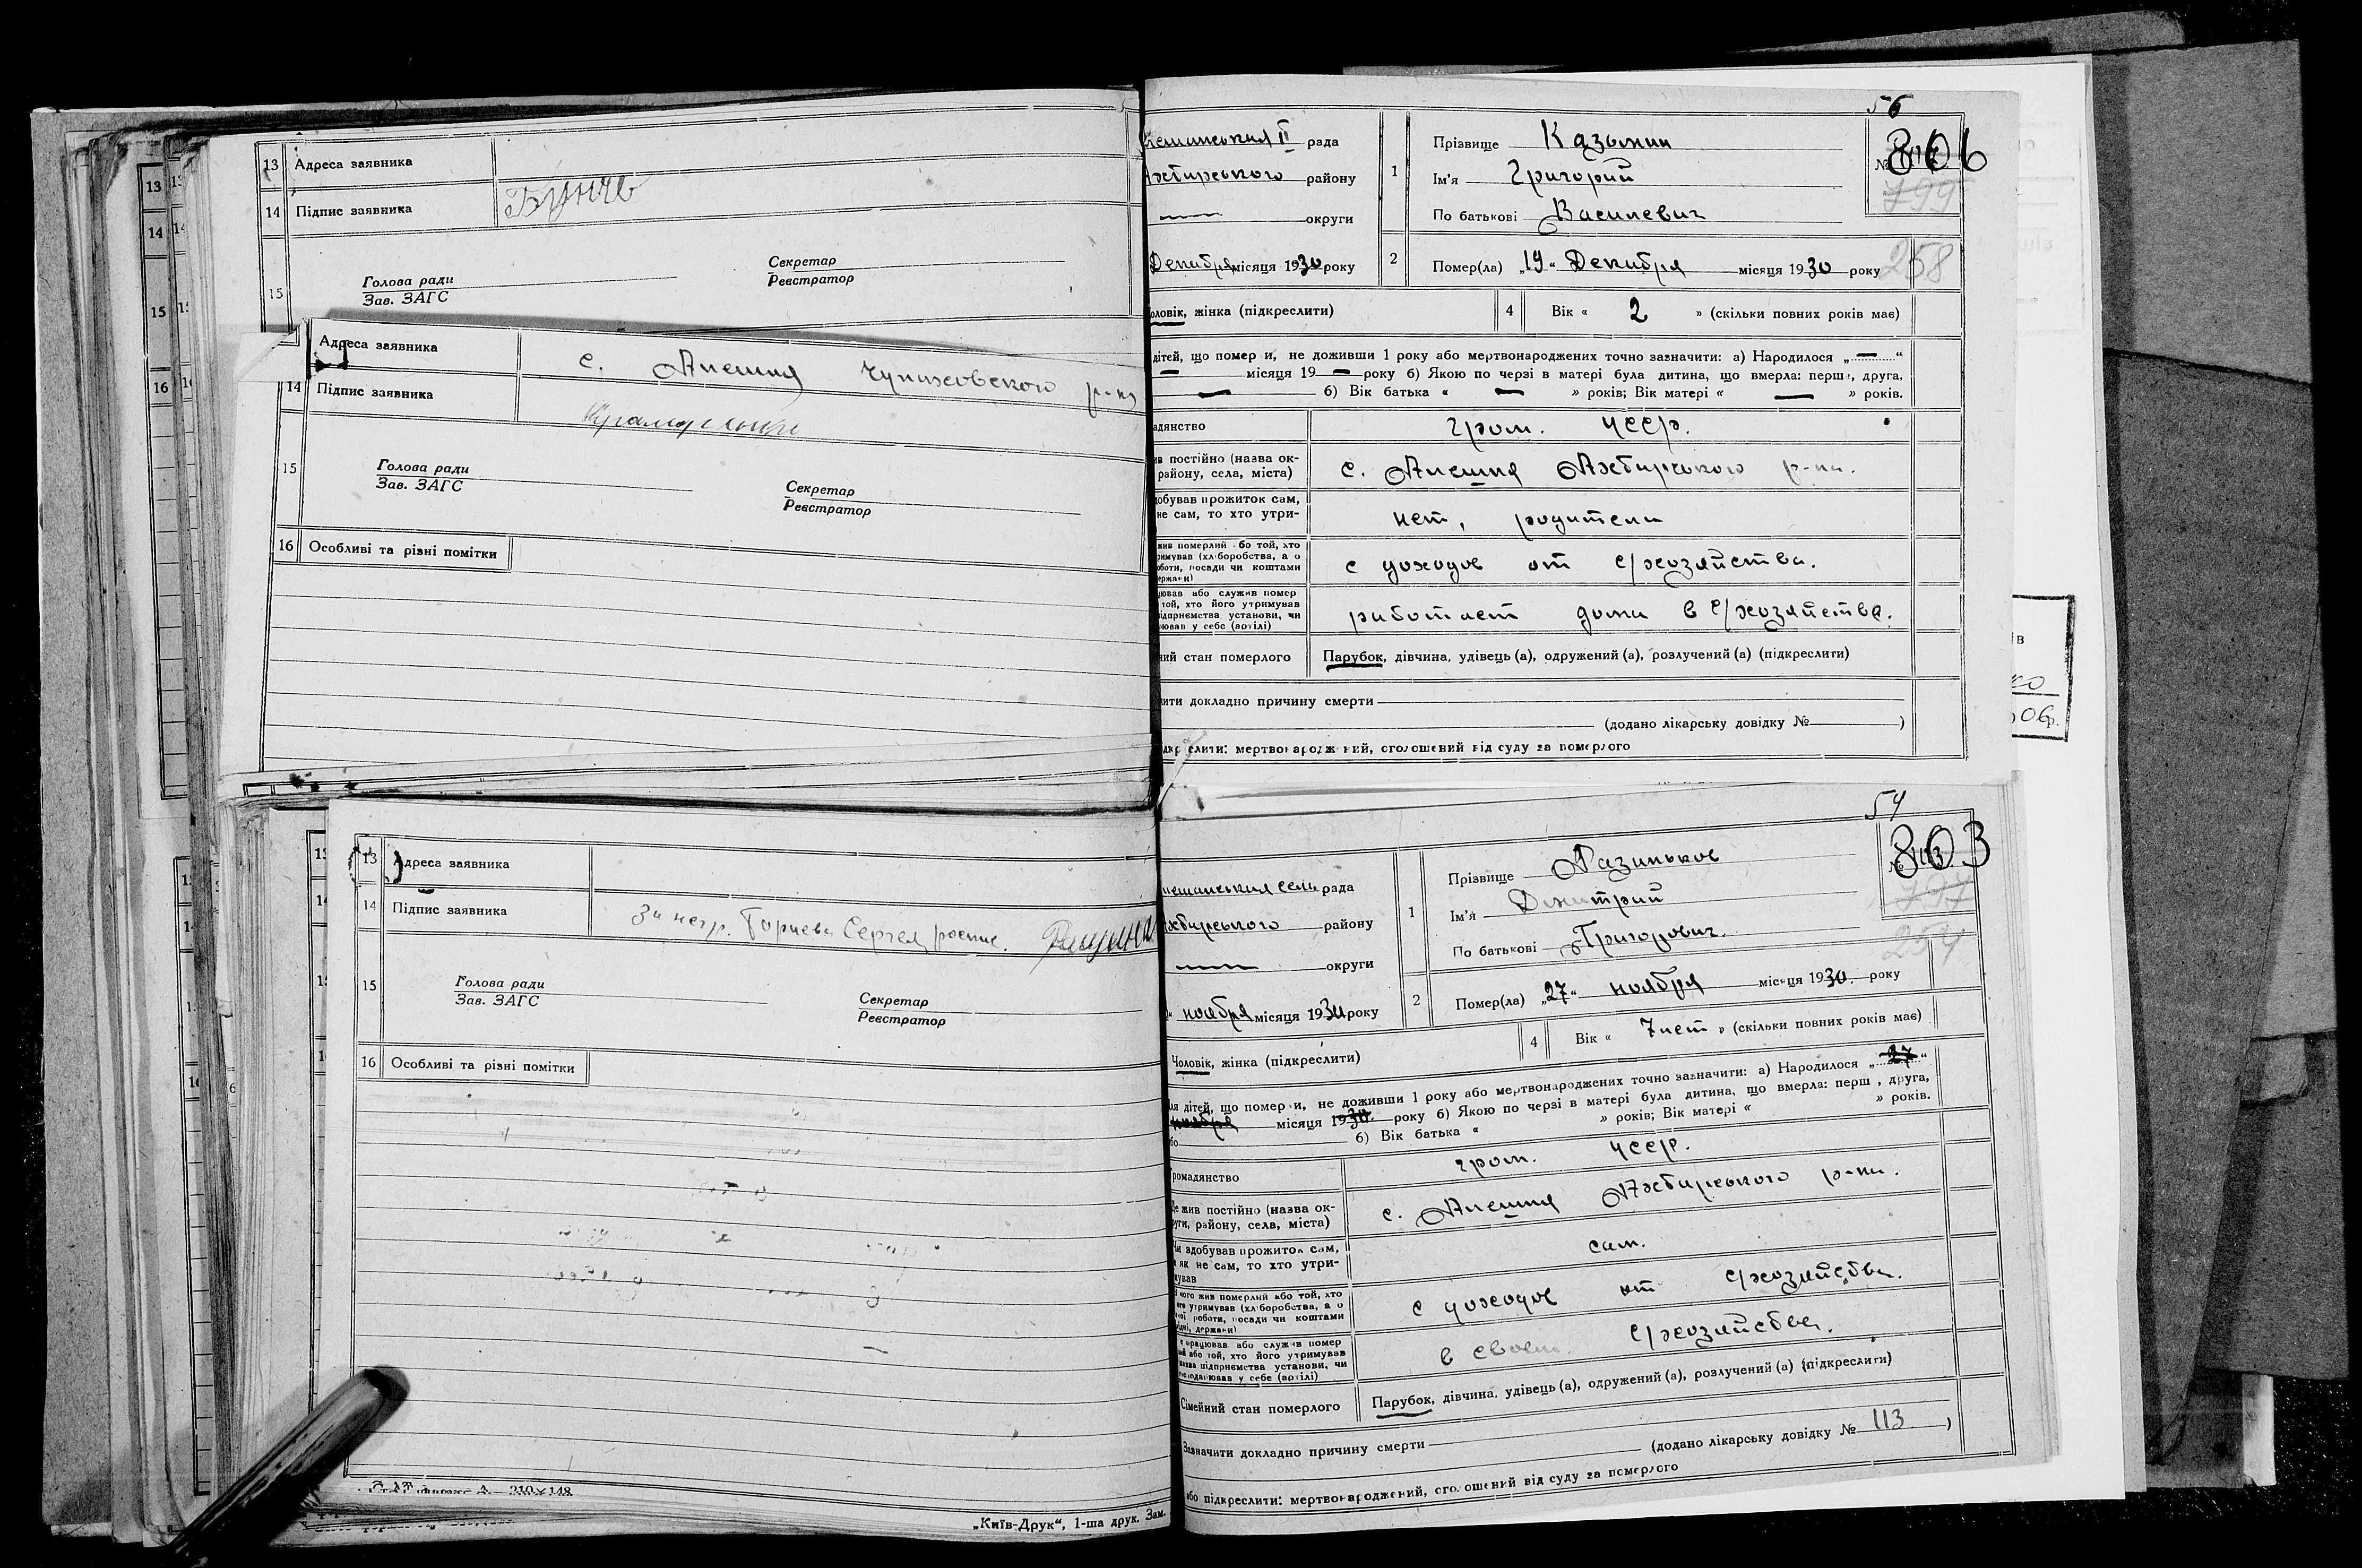 13 Адреса заявника
14 Підпис заявника
15 Голова ради
Зав. ЗАГС
Секретар
Реєстратор
Адреса заявника с. Алешня Чупаховского р-на
14 Підпис заявника
15 Голова ради
Зав. ЗАГС
Секретар
Реєстратор
16 Особливі та різні помітки
13 Адреса заявника
14 Підпис заявника За негр. Сергея роспис.
15 Голова ради
Зав. ЗАГС
Секретар
Реєстратор
16 Особливі та різні помітки
210×148
„Київ-Друк“, 1-ша друк. Зам.
56
рада
району
округи
Декабря місяця 1930 року
1 Прізвище Казьмин
Ім'я Григорий
По батькові Василевич
№ 806
799
258
2 Помер(ла) „19“ Декабря місяця 1930 року
оловік, жінка (підкреслити)
4 Вік « 2 » (скільки повних років має)
дітей, що помер и, не доживши 1 року або мертвонароджених точно зазначити: а) Народилося „ — “
— місяця 19 — року б) Якою по черзі в матері була дитина, що вмерла: перш , друга,
— б) Вік батька « — » років; Вік матері « — » років.
адянство гром. УССР.
ив постійно (назва ок-
району, села, міста) с. Алешня Ахтирського р-на.
добував прожиток сам,
не сам, то хто утри- нет, родители
жив померлий або той, хто
римував (хліборобства, а о
оботи, посади чи коштами
ержави) с доходов от с/хозяйства.
цював або служив помер
той, хто його утримував
ідприємства установи, чи
ював у себе (артілі) работает дома в с/хозяйстве.
ний стан померлого Парубок, дівчина, удівець (а), одружений (а), розлучений (а) (підкреслити)
ити докладно причину смерти
(додано лікарську довідку № )
дкр слити: мертвонароджений, оголошений від суду за померлого
54
рада
району
округи
ноября місяця 1930 року
1 Прізвище Лазиньков
Ім'я Дмитрий
По батькові Григорович.
№ 803
797
254
2 Помер(ла) „27“ ноября місяця 1930. року
Чоловік, жінка (підкреслити)
4 Вік « 7 лет » (скільки повних років має)
ля дітей, що помер и, не доживши 1 року або мертвонароджених точно зазначити: а) Народилося „ 27 “
ноября місяця 1930 року б) Якою по черзі в матері була дитина, що вмерла: перш , друга,
бо б) Вік батька « » років; Вік матері « » років.
ромадянство гром. УССР.
Де жив постійно (назва ок-
руги, району, села, міста) с. Алешня Ахтирського р-на.
Чи здобував прожиток сам,
а як не сам, то хто утри-
мував сам.
З чого жив померлий або той, хто
його утримував (хліборобства, а о
ної роботи, посади чи коштами
рідні, держави) с доходов от с/хозяйства.
е працював або служив помер
ий або той, хто його утримував
назва підприємства установи, чи
сподарював у себе (артілі) в своем с/хозяйстве.
Сімейний стан померлого Парубок, дівчина, удівець (а), одружений (а), розлучений (а) (підкреслити)
Зазначити докладно причину смерти
(додано лікарську довідку № 113 )
або підкреслити: мертвонароджений, оголошений від суду за померлого